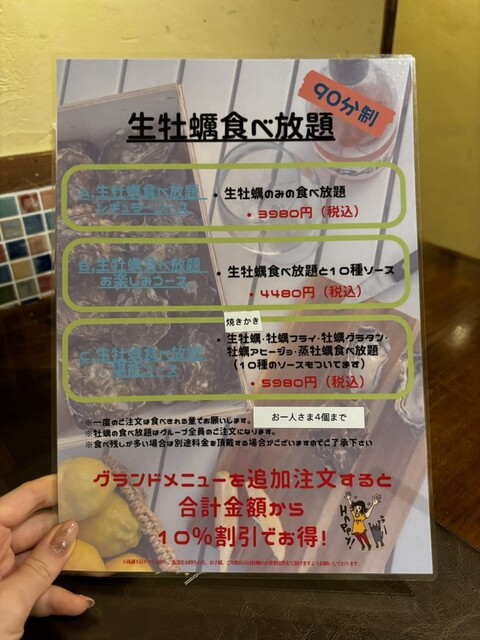 90分制
生牡蠣食べ放題
A,生牡蠣食べ放題
レギュラーコース
・生牡蠣のみの食べ放題
・3980円（税込）
B,生牡蠣食べ放題
お楽しみコース
・生牡蠣食べ放題と10種ソース
・4480円（税込）
焼きかき
C,生牡蠣食べ放題
コース
・生牡蠣・牡蠣フライ・牡蠣グラタン・
牡蠣アヒージョ・蒸牡蠣食べ放題
（10種のソースもついてます）
・5980円（税込）
お一人さま4個まで
※一度のご注文は食べきれる量でお願いします。
※牡蠣の食べ放題はグループ全員のご注文になります。
※食べ残しが多い場合は別途料金を頂戴する場合がございますのでご了承下さい
グランドメニューを追加注文すると
合計金額から
10％割引でお得!
Happy!